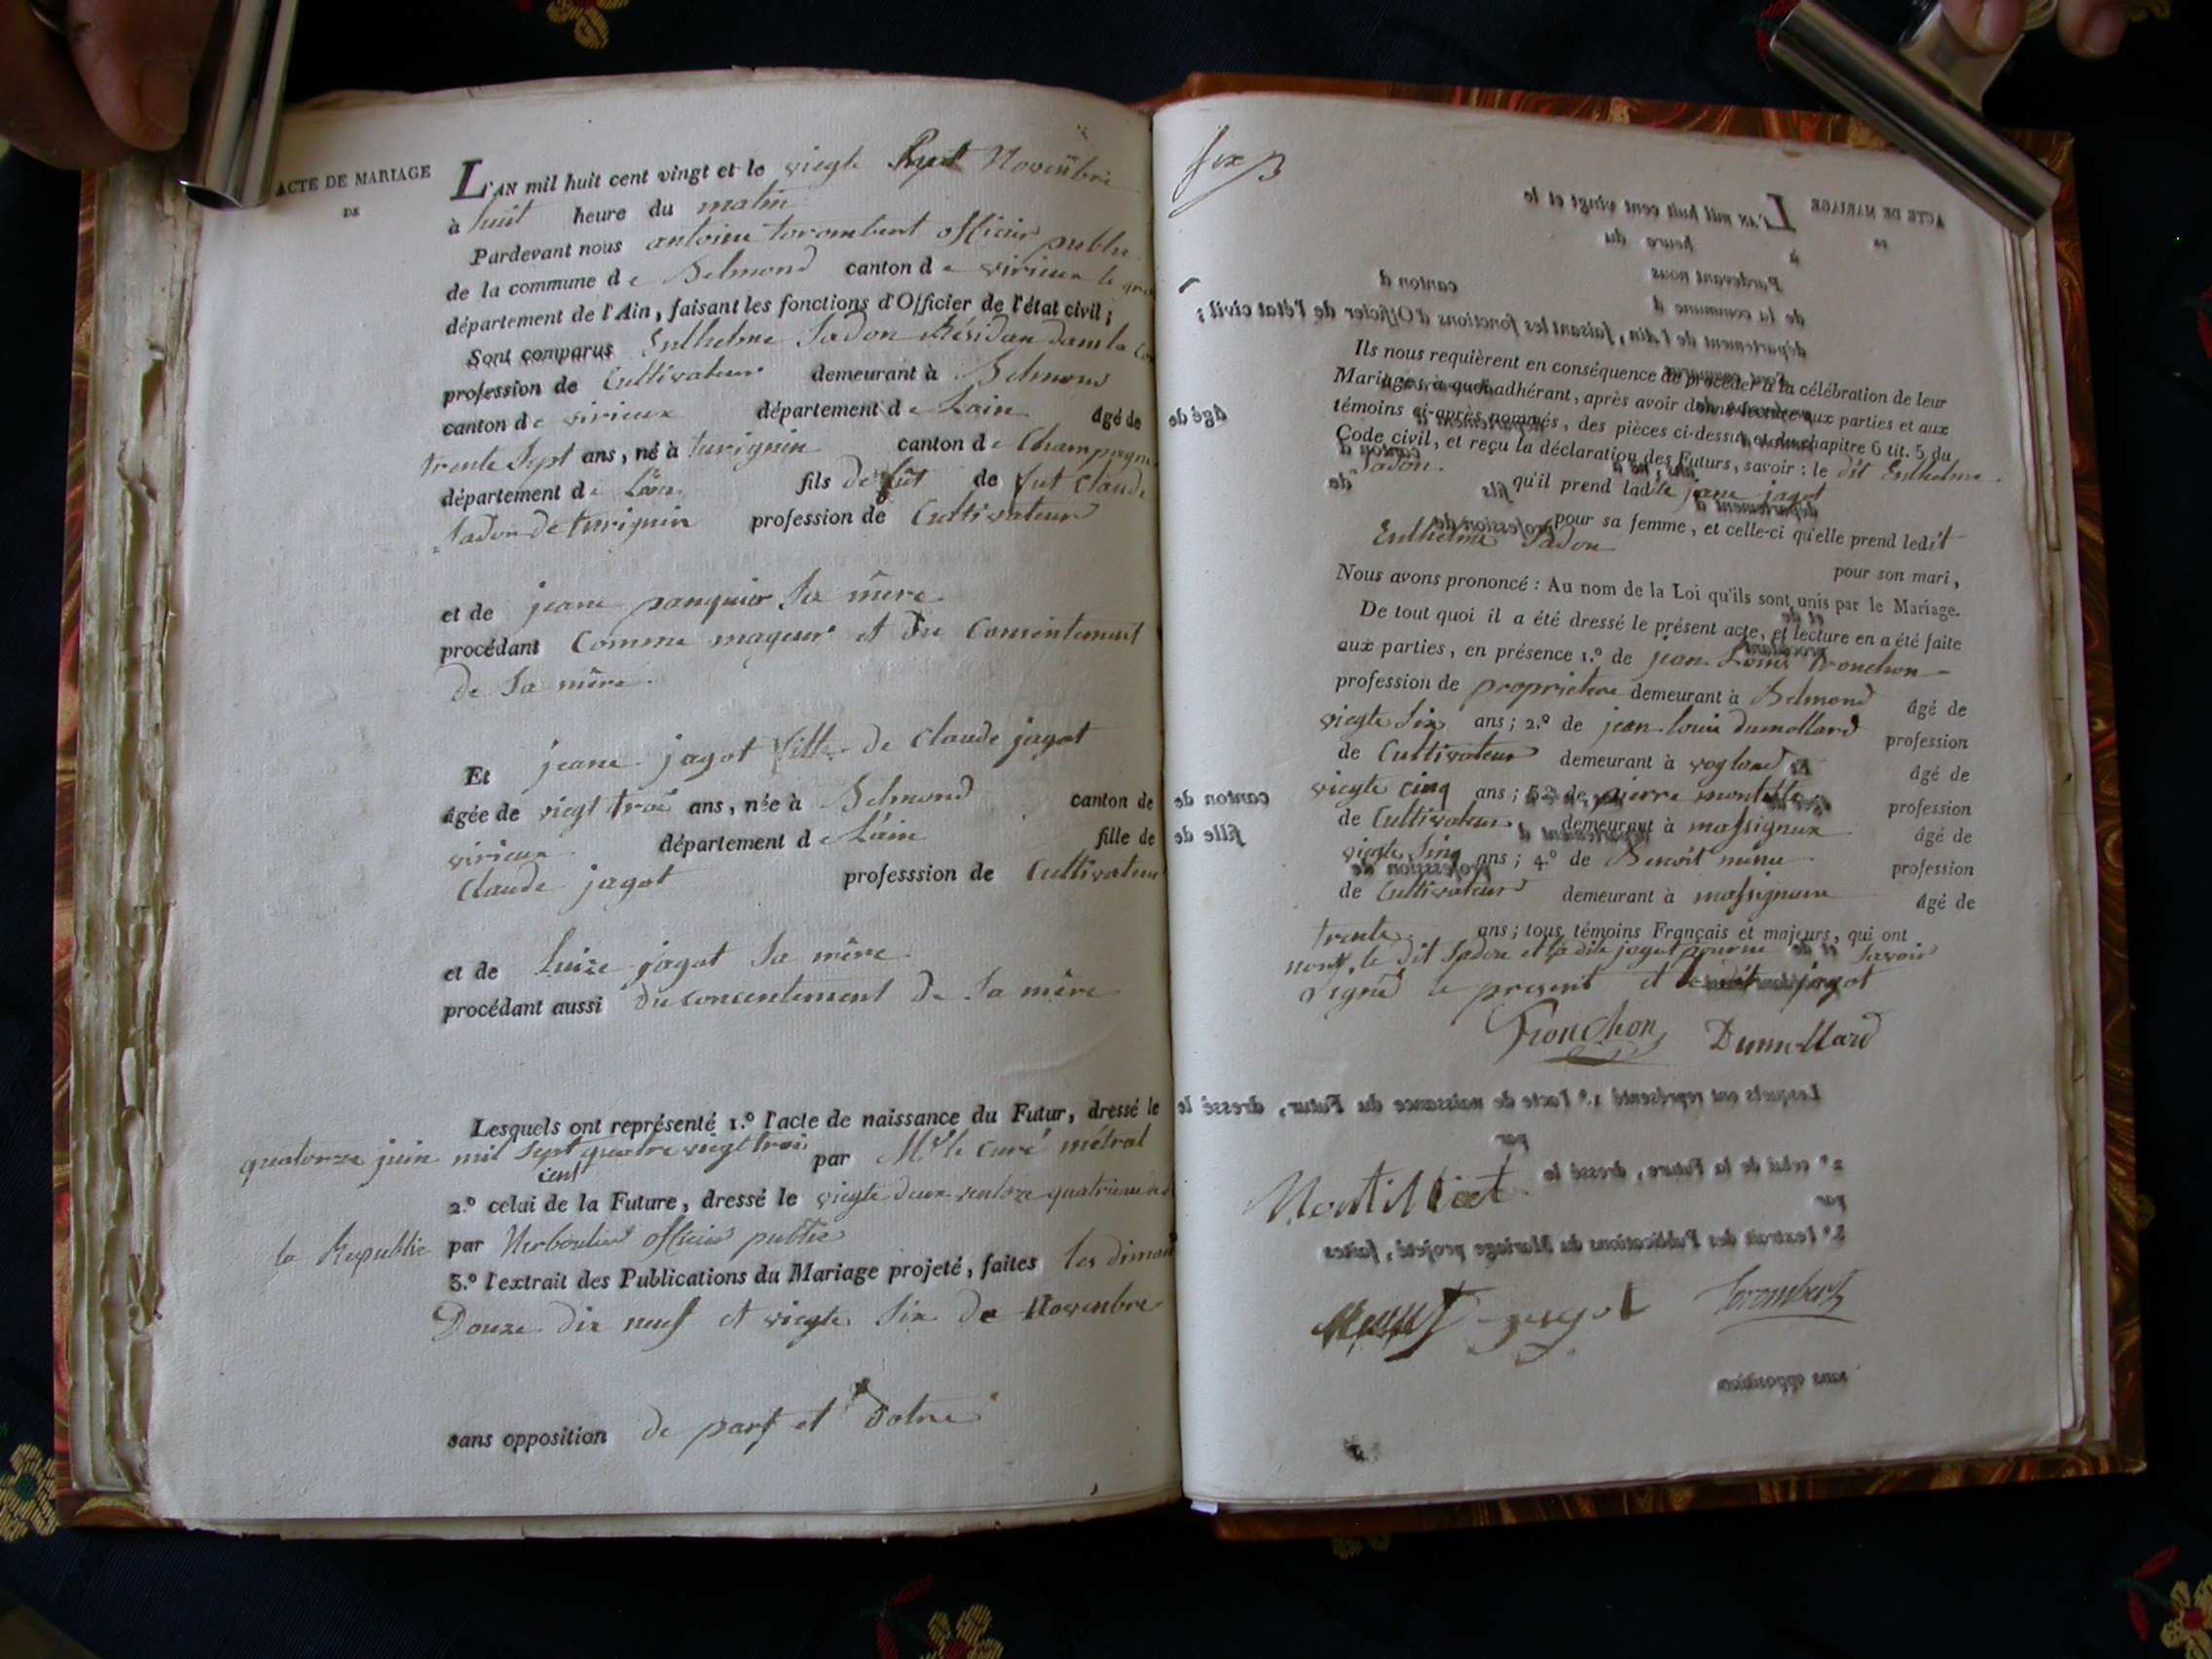 ACTE DE MARIAGE
DE
L'AN mil huit cent vingt et le viegte huit Novembre
à huit heure du matin
Pardevant nous antoine torombert officier public
de la commune de Belmond canton de virieux le gra
département de l'Ain, faisant les fonctions d'Officier de l'état civil;
Sont comparus Enthelme Jadon Résidan dans la co
profession de Cultivateur demeurant à Belmond
canton de virieux département de Lain âgé de
trente Sept ans, né à turignin canton de Champagne
département de Lain fils de fut de fut Claude
Jadon de turignin profession de Cultivateur
et de jeane panquier Sa mère
procédant Comme mageur et du Consentement
de Sa mère.
Et jeane jagot fille de Claude jagot
âgée de viegt troi ans, née à Belmond canton de
virieux département de Lain fille de
Claude jagot professsion de Cultivateur
et de Luize jagot Sa mère
procédant aussi du concentement de Sa mère
Lesquels ont représenté 1.º l'acte de naissance du Futur, dressé le
quatorze juin mil Sept quatre viegt troi par Mr le curé métral
cent
2.º celui de la Future, dressé le viegte deux ventoze quatrieme
la Republic par officier public
3.º l'extrait des Publications du Mariage projeté, faites les diman
Douze dix neuf et viegte Six de Novembre
sans opposition de part et dotre
six
Ils nous requièrent en conséquence de procéder à la célébration de leur
Mariage; à quoi adhérant, après avoir donné lecture aux parties et aux
témoins ci-après nommés, des pièces ci-dessus et du chapitre 6 tit. 5 du
Code civil, et reçu la déclaration des Futurs, savoir: le dit Enthelme
Jadon qu'il prend ladite jeane jagot
pour sa femme, et celle-ci qu'elle prend ledit
Enthelme Jadon pour son mari,
Nous avons prononcé: Au nom de la Loi qu'ils sont unis par le Mariage.
De tout quoi il a été dressé le présent acte, et lecture en a été faite
aux parties, en présence 1.º de jean Louis tronchon
profession de proprietere demeurant à Belmond âgé de
viegte Six ans; 2.º de jean louis dumollard profession
de Cultivateur demeurant à vogland âgé de
viegte cinq ans; 3.º de pierre profession
de Cultivateur demeurant à massigneux âgé de
viegte Sinq ans; 4.º de Benoit profession
de Cultivateur demeurant à massigneux âgé de
trente ans; tous témoins Français et majeurs, qui ont
non, le dit Jadon et la dite jagot Savoir
Signé le present et jagot
Tronchon Dumollard
Montilliet
jagot Torombert